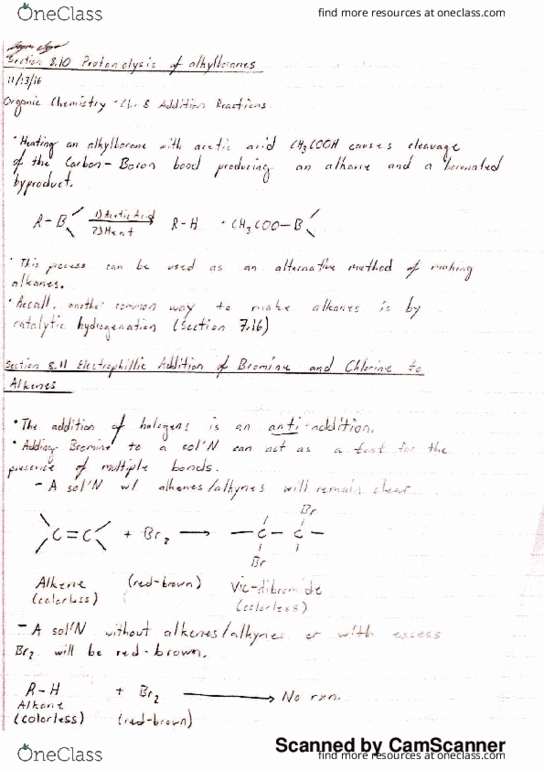 OneClass
find more resources at oneclass.com
Section 8.10 Protonolysis of alkylboranes
11/13/16
Organic Chemistry - Ch. 8 Addition Reactions
• Heating an alkylborane with acetic acid CH3COOH causes cleavage
of the Carbon-Boron bond producing an alkane and a
byproduct.
R-B 1) Acetic Acid R-H + CH3COO-B
2) Heat
• This process can be used as an alternative method of making
alkanes.
• Recall, another common way to make alkanes is by
catalytic hydrogenation (Section 7.16)
Section 8.11 Electrophillic Addition of Bromine and Chlorine to
Alkenes
• The addition of halogens is an anti-addition.
• Adding Bromine to a sol'N can act as a test for the
presence of multiple bonds.
- A sol'N w/ alkenes/alkynes will remain clear
Br
C=C + Br2 → -C-C-
Br
Alkene (red-brown) Vic-dibromide
(colorless) (colorless)
- A sol'N without alkenes/alkynes or with excess
Br2 will be red-brown.
R-H + Br2 → No rxn.
Alkane
(colorless) (red-brown)
Scanned by CamScanner
OneClass
find more resources at oneclass.com